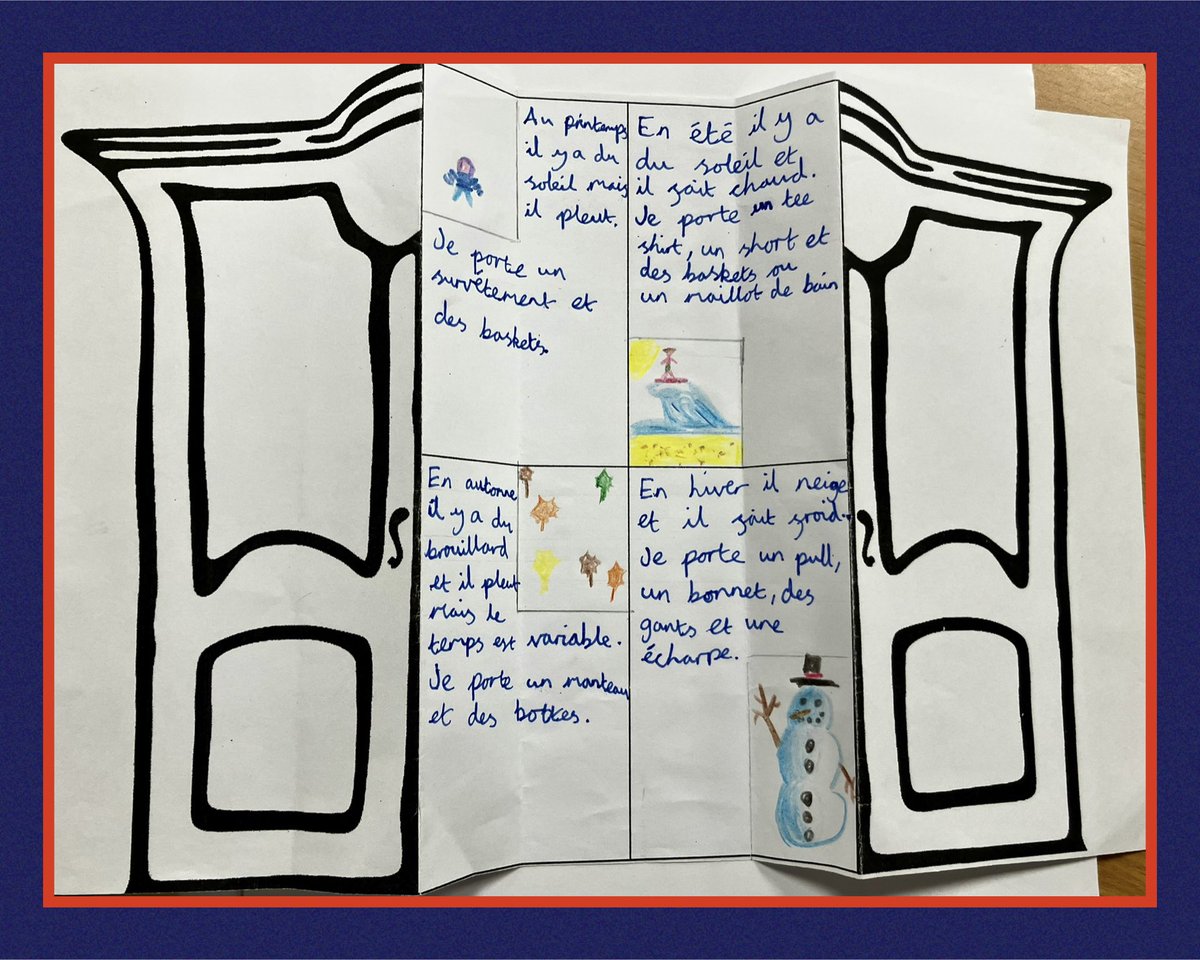 Au printemps
il y a du
soleil mais
il pleut.
Je porte un
survêtement et
des baskets.
En été il y a
du soleil et
il fait chaud.
Je porte un tee
shirt, un short et
des baskets ou
un maillot de bain
En automne
il y a du
brouillard
et il pleut
Mais le
temps est variable.
Je porte un manteau
et des bottes.
En hiver il neige
et il fait froid.
Je porte un pull,
un bonnet, des
gants et une
écharpe.